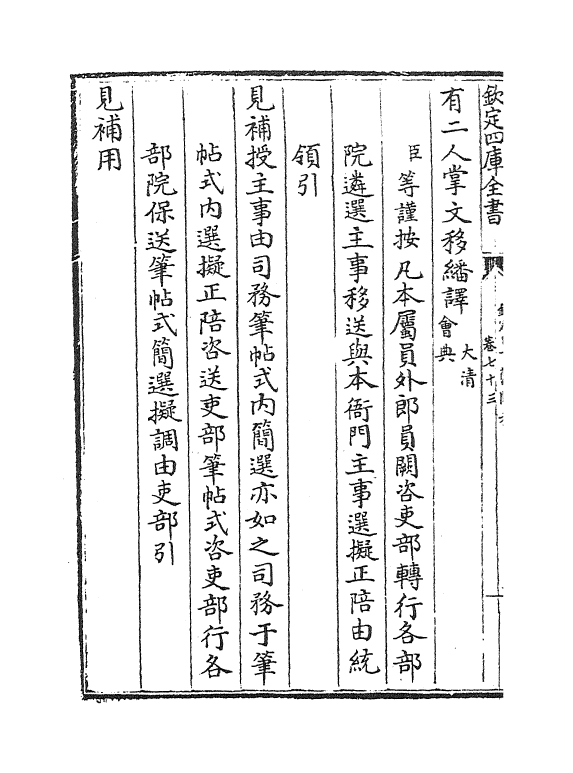 欽定四庫全書
卷七十三
有二人掌文移繙譯大清會典
臣等謹按凡本屬員外郎員闕咨吏部轉行各部
院遴選主事移送與本衙門主事選擬正陪由統
領引
見補授主事由司務筆帖式內簡選亦如之司務于筆
帖式內選擬正陪咨送吏部筆帖式咨吏部行各
部院保送筆帖式簡選擬調由吏部引
見補用